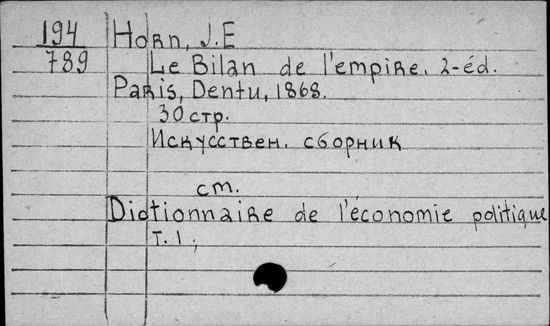 194 Horn, J.E
789 Le Bilan de l'empire. 2-éd.
Paris, Dentu, 1868.
30 стр.
Искусствен. сборник
ст.
Dictionnaire de l'économie politique
T. 1,